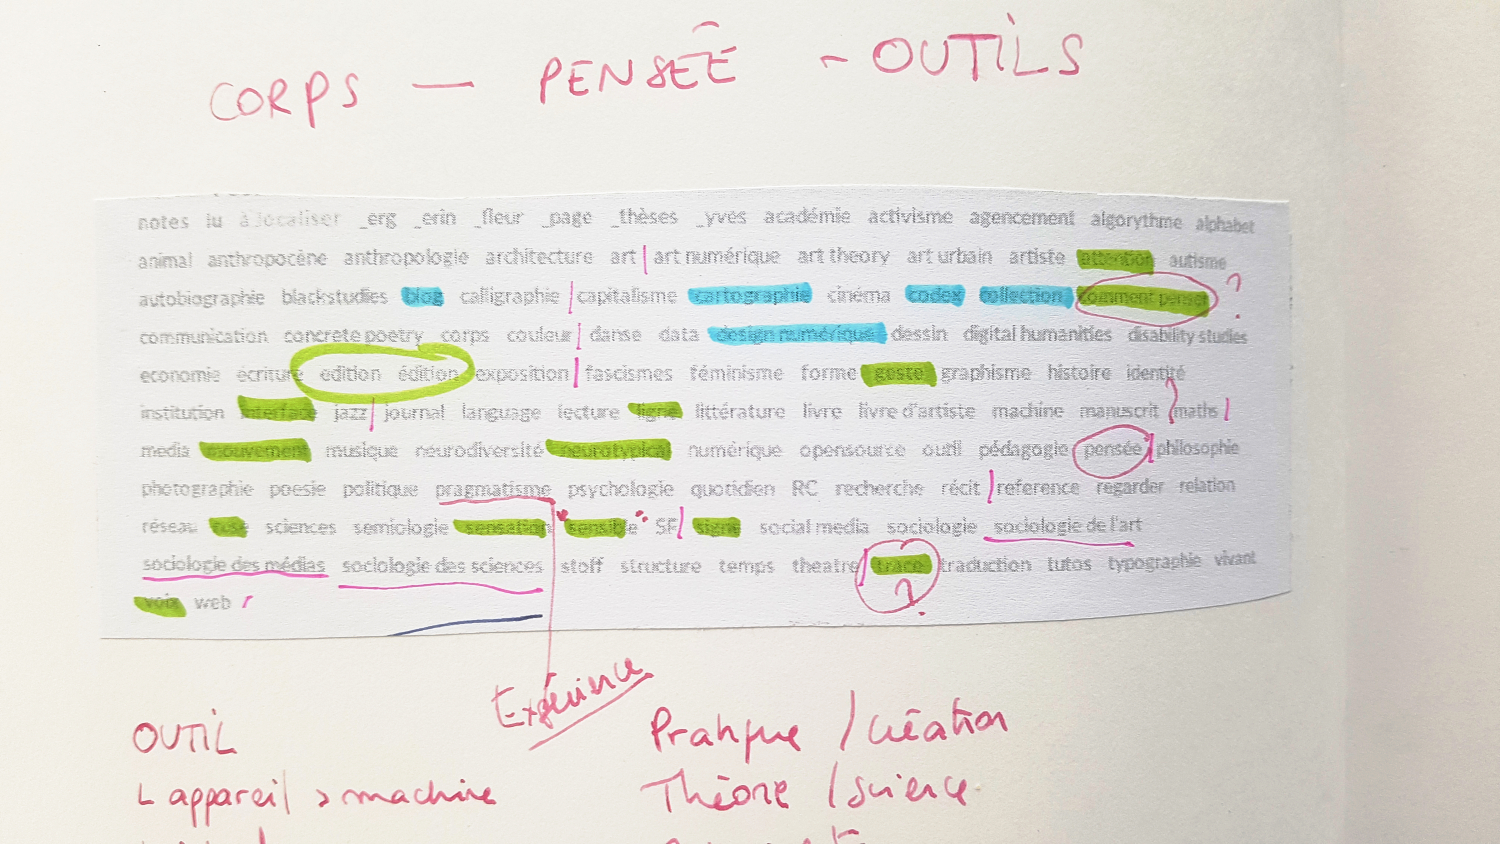 CORPS — PENSÉE - OUTILS
notes lu à localiser _erg _erin _fleur _page _thèses _yves académie activisme agencement algorythme alphabet
animal anthropocène anthropologie architecture art | art numérique art theory art urbain artiste attention autisme
autobiographie blackstudies blog calligraphie | capitalisme cartographie cinéma codex collection comment penser ?
communication concrete poetry corps couleur | danse data design numérique dessin digital humanities disability studies
economie écriture edition édition exposition | fascismes féminisme forme geste graphisme histoire identité
institution interface jazz | journal language lecture ligne littérature livre livre d'artiste machine manuscrit maths |
media mouvement musique neurodiversité neurotypical numérique opensource outil pédagogie pensée | philosophie
photographie poesie politique pragmatisme psychologie quotidien RC recherche récit | reference regarder relation
réseau ruse sciences semiologie sensation sensible SF | signe social media sociologie sociologie de l'art
sociologie des médias sociologie des sciences stoff structure temps theatre | trace traduction tutos typographie vivant
?
voix web
Expérience
OUTIL Pratique / Création
L appareil > machine Théorie / science